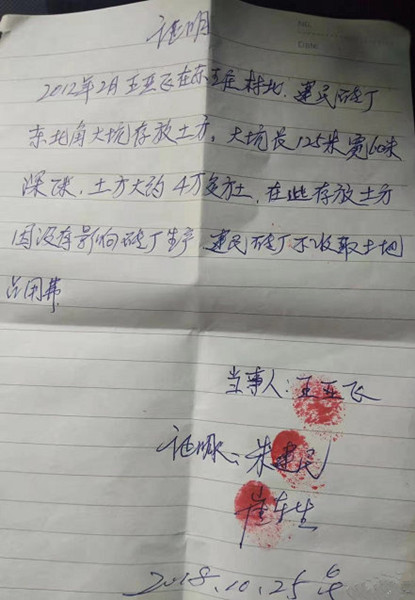 证明
2012年2月王亚飞在东王崔村北.建民砖厂
东北角大坑存放土方,大坑长125米宽60米
深 米,土方大约4万多方土,在此存放土方
因没有影响砖厂生产 建民砖厂不收取土地
占用费
当事人:王亚飞
证明人:朱建民
崔东生
2018.10.25号